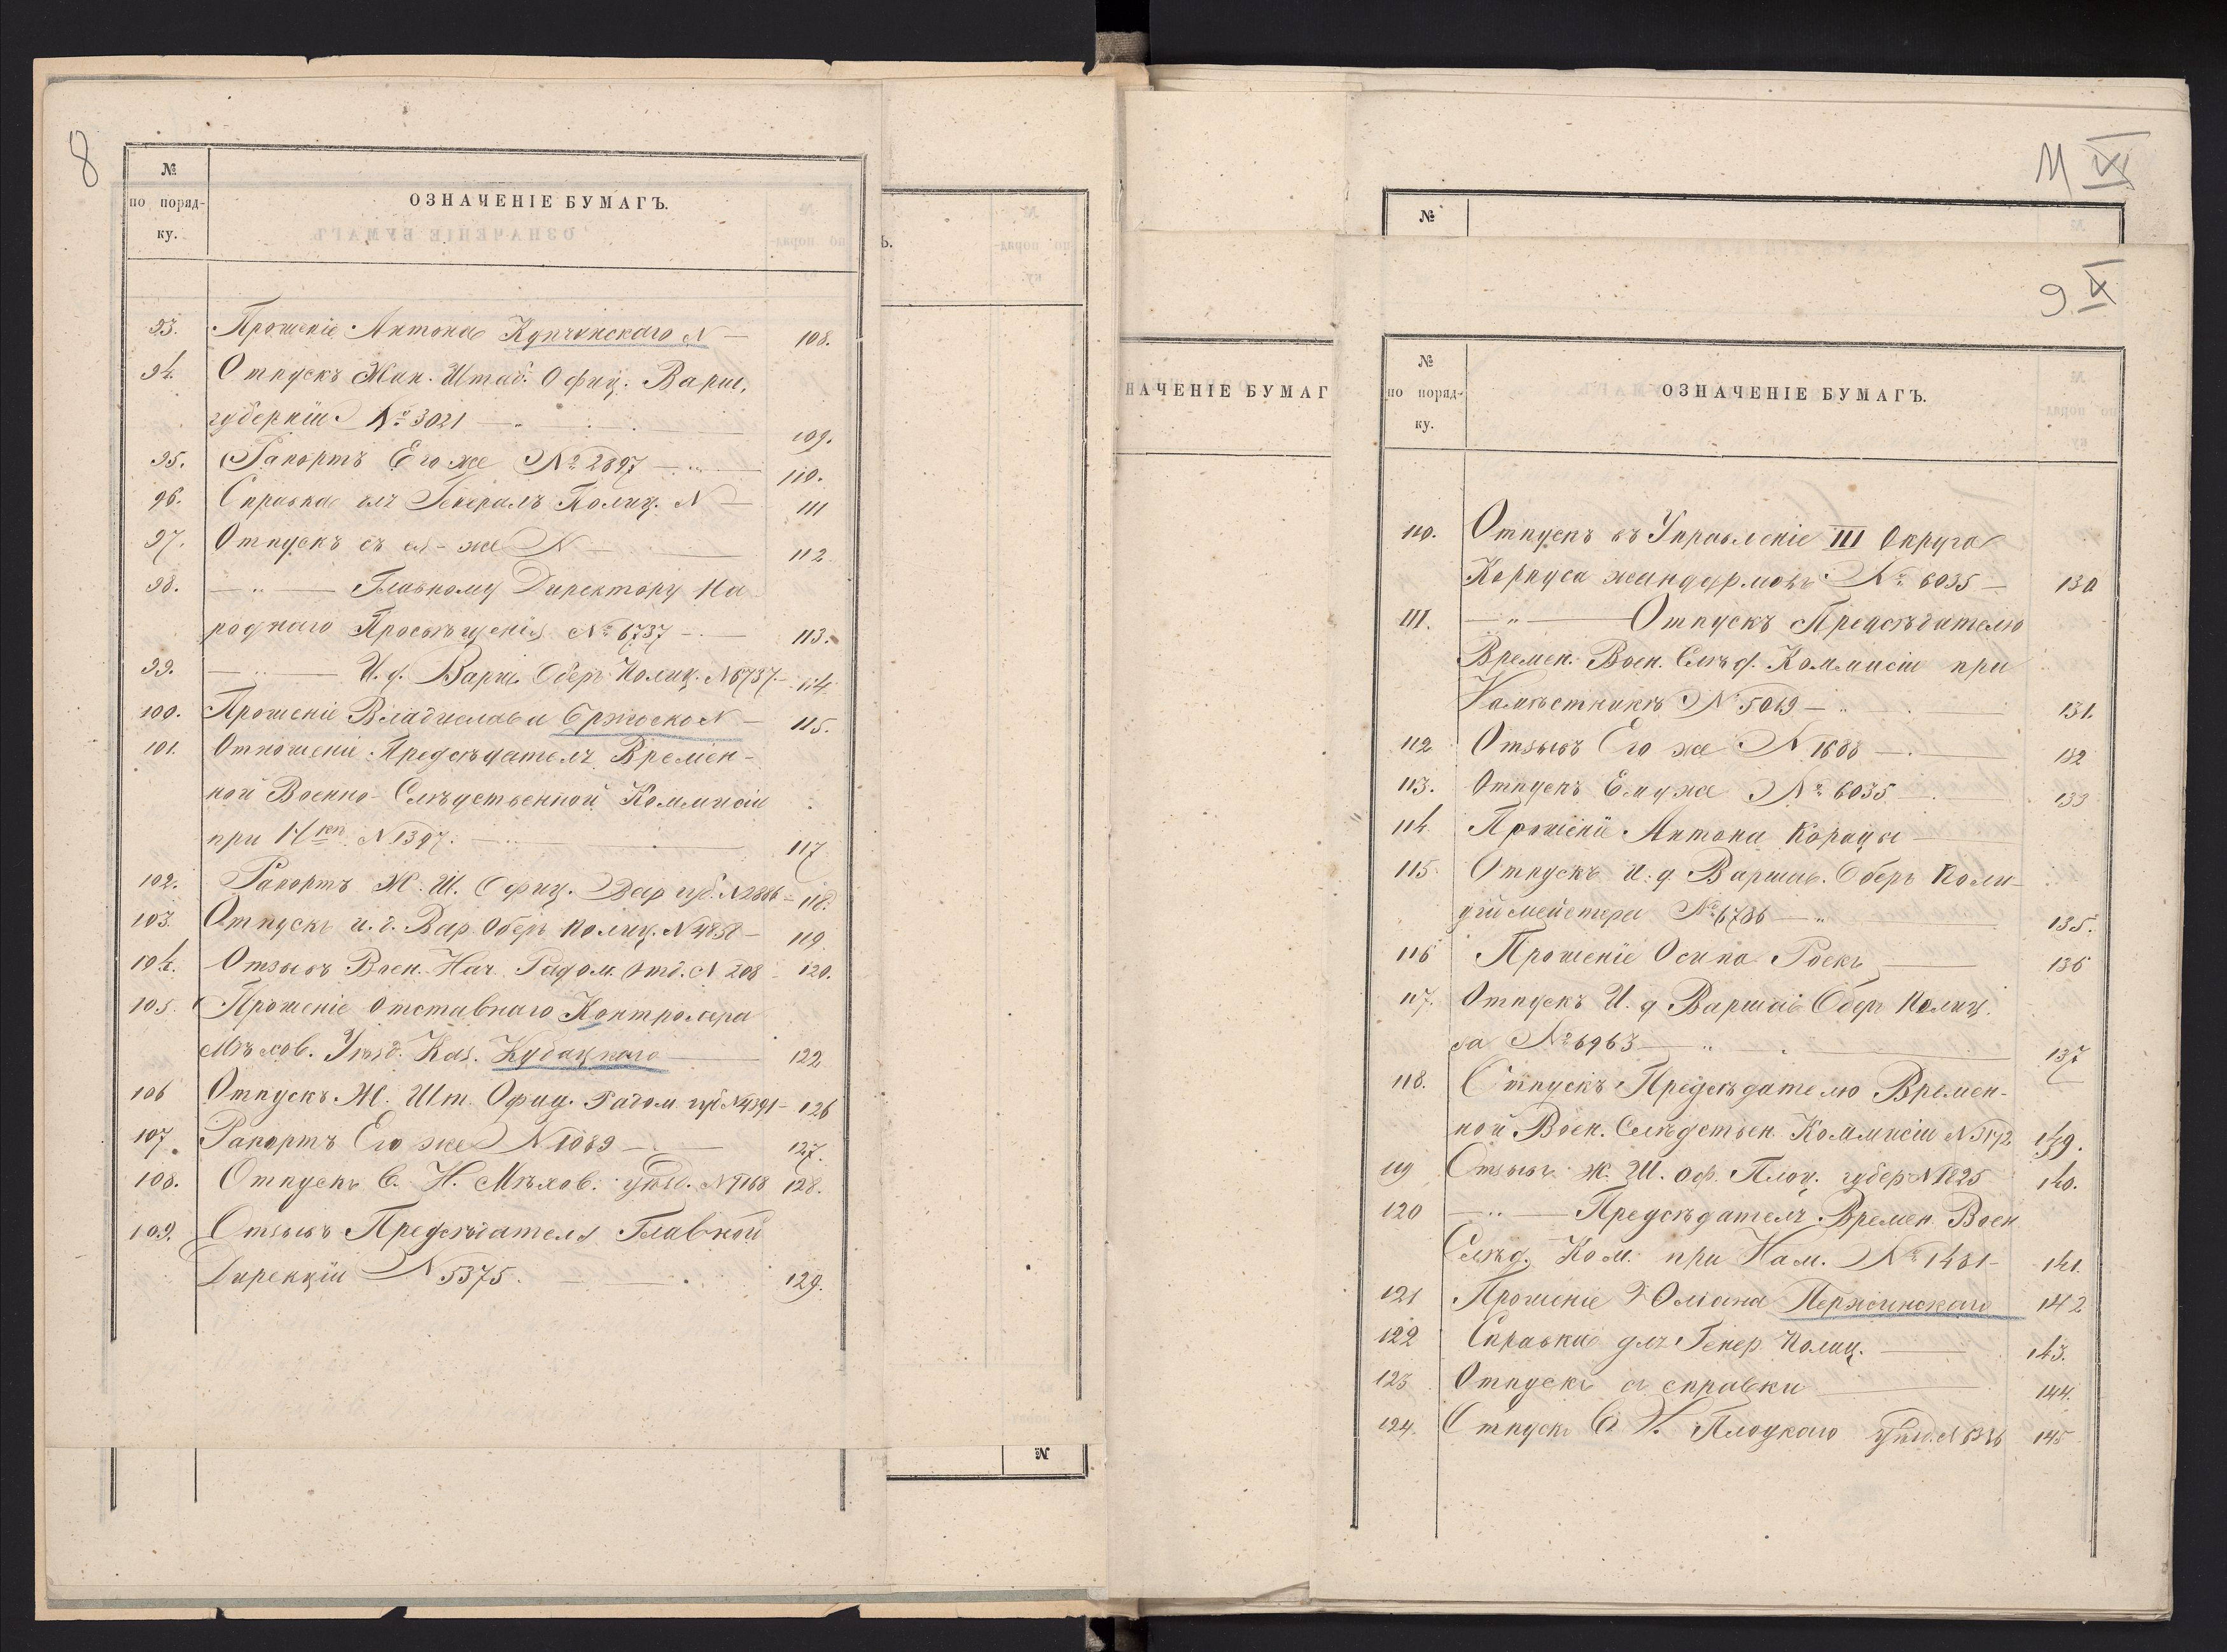 8
№
по поряд-
ку.
ОЗНАЧЕНІЕ БУМАГЪ.
93. Прошеніе Антона Купчинскаго N — 108.
94. Отпускъ Жан. Штаб. Офиц. Варш.
губерніи № 3021 — 109.
95. Рапортъ Его же № 2897 — 110.
96. Справка Генералъ Полиц. N — 111
97. Отпускъ съ ея-же N — 112
98. — „ — Главному Директору На
роднаго Просвѣщенія № 6737 — 113.
99. — „ — И. д. Варш. Оберъ Полиц. N 6737 — 114.
100. Прошеніе Владислава N — 115.
101. Отношеніе Предсѣдателя Времен-
ной Военно-Слѣдственной Коммисіи
при N 1397. — 117
102. Рапортъ Ж. Ш. Офиц. Вар губ. N 2886 — 118.
103. Отпускъ и. д. Вар. Оберъ Полиц. N 4858 — 119
104. Отзывъ Воен. Нач. Радом. Отд. N 208 — 120.
105. Прошеніе отставнаго Контролера
Мѣхов. Уѣзд. Каз. Кубацкаго — 122
106 Отпускъ Ж. Шт. Офиц. Радом. губ N 4391 — 126
107. Рапортъ Его же N 1089 — 127.
108. Отпускъ В. Н. Мѣхов. уѣзд. N 7168 128.
109. Отзывъ Предсѣдателя Главной
Дирекціи N 5375. — 129.
Ъ.
№
НАЧЕНІЕ БУМАГ
11 XI
№
9 X
№
по поряд-
ку.
ОЗНАЧЕНІЕ БУМАГЪ.
110. Отпускъ въ Управленіе III Округа
Корпуса жандармовъ № 6035 — 130
111. — „ — Отпускъ Предсѣдателю
Времен. Воен. Слѣд. Коммисіи при
Намѣстникѣ N 5049 — 131.
112 Отзывъ Его же N 1688 — 132
113. Отпускъ Ему же № 6035 — 133
114. Прошеніе Антона —
115. Отпускъ И. д. Варшав. Оберъ Поли-
ціймейстера № 6786 — „ 135.
116 Прошеніе Осипа Роекъ — 136
117. Отпускъ И. д Варшав Оберъ Полиц.
за № 6963 — „ 137
118. Отпускъ Предсѣдателю Времен-
ной Воен. Слѣдствен. Коммисіи N 5172 139.
119 Отзывъ Ж. Ш. Оф. Плоц. губер N 1825 140.
120 — „ — Предсѣдателя Времен. Воен
Слѣд. Ком. при Нам. № 1481 — 141.
121 Прошеніе Юліана Пержинскаго 142
122 Справка для Генер. Полиц. — 143.
123 Отпускъ съ справки — 144.
124. Отпускъ В. Н. Плоцкаго уѣзд. N 145